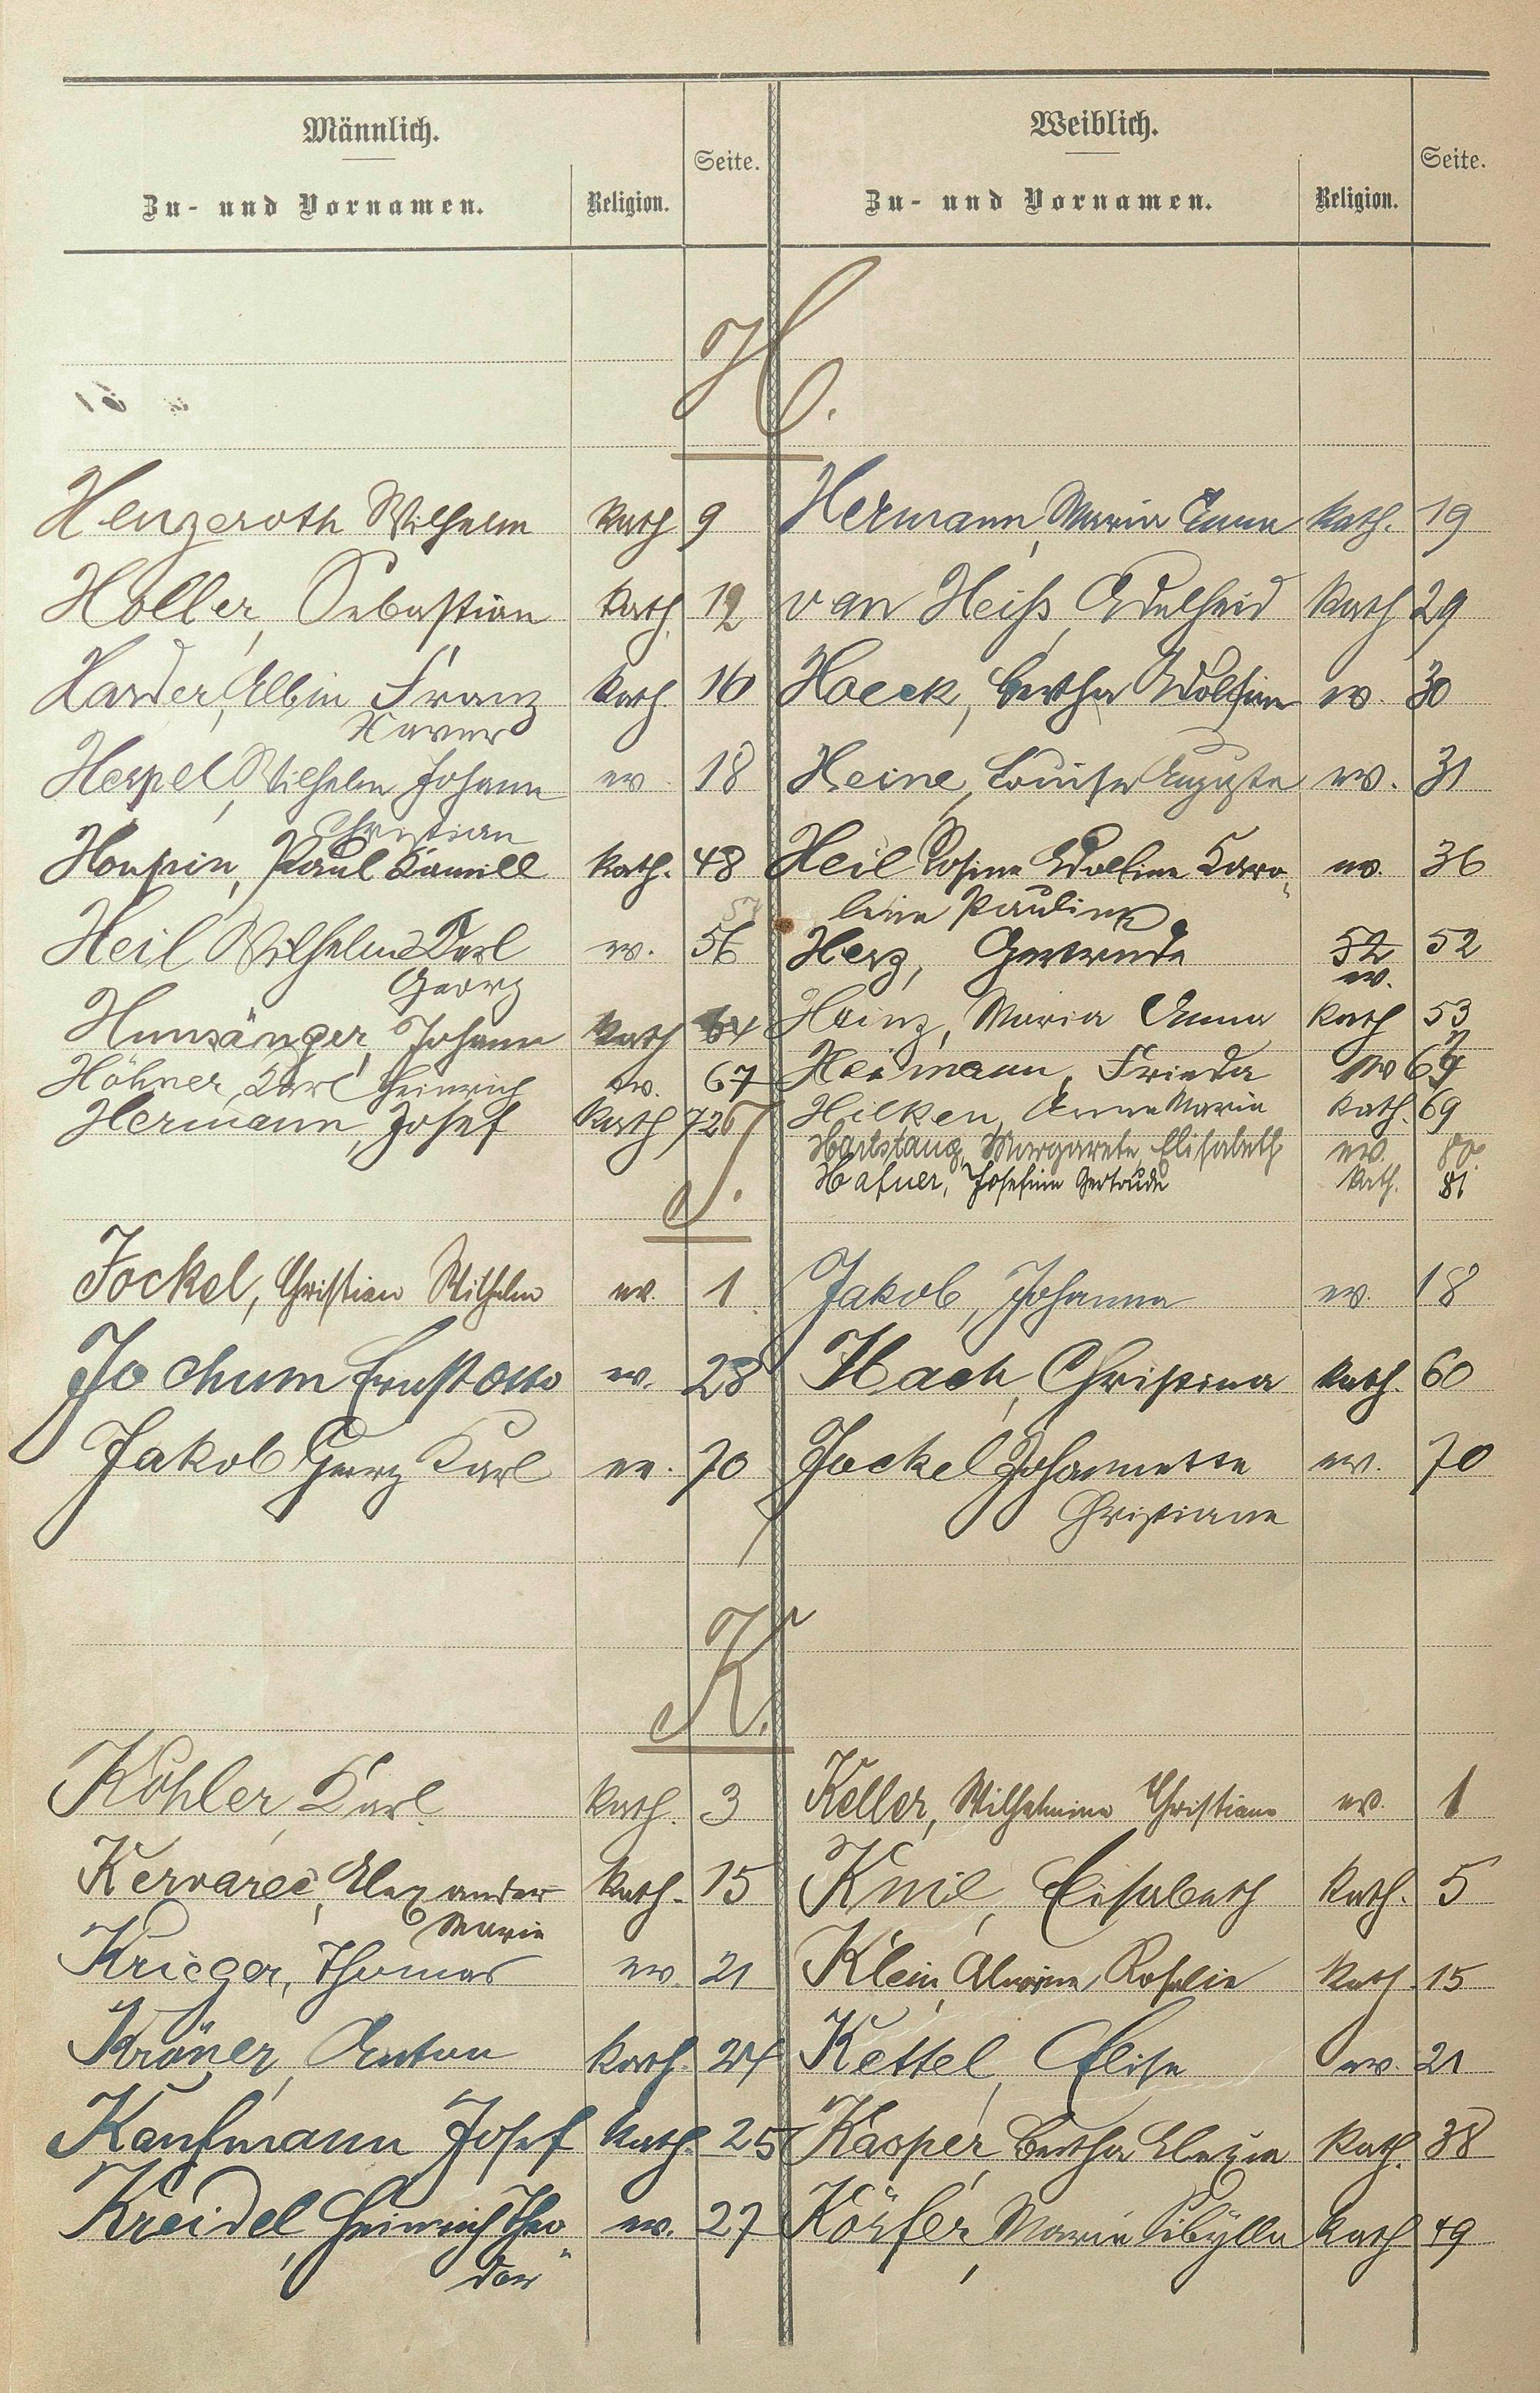 Männlich.
Zu- und Vornamen. Religion. Seite.
Weiblich.
Zu- und Vornamen. Religion. Seite.
H.
Henzeroth Wilhelm kath 9
Hermann, Maria Anna kath. 19
Holler, Sebastian kath. 12
van Heiß, Adelheid kath 29
Harder, Albin Franz kath. 16
Xaver
Hoeck, Bertha Adolfine ev. 30
Hespel, Wilhelm Johann ev. 18
Christian
Heine, Louise Auguste ev. 31
Houpin, Paul Kamill kath. 48
Heil Rosine Adolfine Karo-
line Pauline ev. 36
Heil Wilhelm Karl ev. 56
Georg
Herz, Gertrude 52 52
ev.
Hunsänger, Johann kath 64
Heinz, Maria Anna kath 53
Höhner, Karl Heinrich ev. 67
Heimann, Frieda ev
Hermann, Josef kath 72
Hilken, Anna Maria kath. 69
Hartstang, Margarete Elisabeth ev. 80.
Hafner, Josefine Gertrude kath. 81
J.
Jockel, Christian Wilhelm ev. 1
Jakob, Johanna ev. 18
Jochum Ernst Otto ev. 28
Ibach, Christina kath. 60
Jakob Georg Karl ev. 70
Jockel Johannette ev. 70
Christiane
K.
Köhler, Karl kath. 3
Keller, Wilhelmine Christiane ev. 1
Kervarec, Alexander kath. 15
Marie
Knie, Elisabeth kath. 5
Krieger, Thomas ev. 21
Klein, Alwine, Rosalie kath. 15
Kröner, Anton kath. 24
Kettel, Elise ev. 21
Kaufmann Josef kath. 25
Kasper, Bertha kath. 38
Kreidel, Heinrich Theo- ev. 27
dor
Körfer, Maria Sibylla kath 49